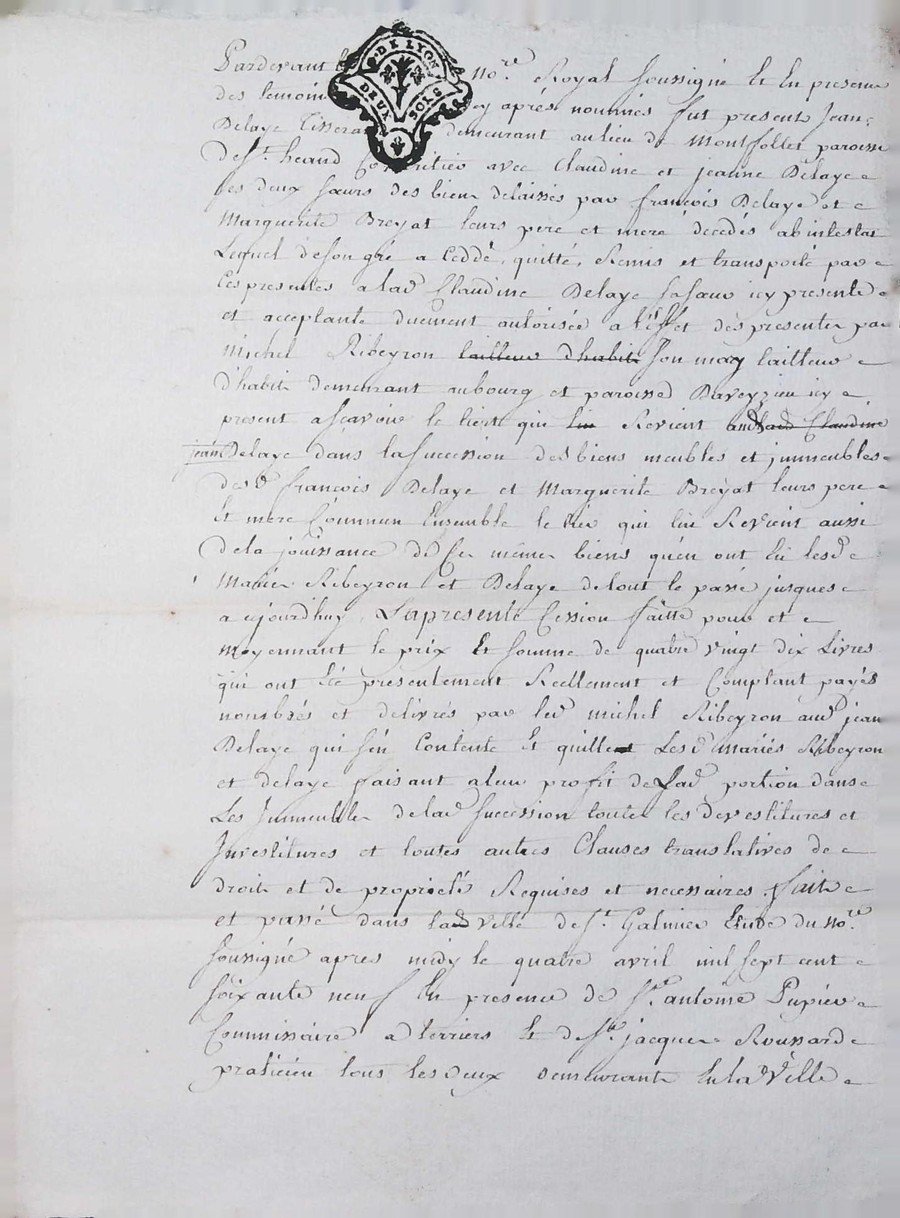 Pardevant le no.re Royal soussigné Et En presence
G. DE LYON
DEUX SOLS
des temoins cy après nommés fut present Jean
Delaye tisserand demeurant au lieu de Montfollet paroisse
de St. heand Coheritier avec Claudine et jeanne Delaye
ses deux sœurs des biens delaissés par françois Delaye et
Marguerite Breyat leurs pere et mere decedés abintestat
Lequel de son gré a Ceddé, quitté, Remis et transporté par
Ces presentes a lad Claudine Delaye sa sœur icy presente
et acceptante duement autorisée a l'effet des presentes par
Michel Ribeyron tailleur d'habits son mary tailleur
d'habits demeurant au bourg et paroisse Daveyzieu icy
present ascavoir le tiers qui lui Revient aud Claudine
jean Delaye dans la succession des biens meubles et jmmeubles
desd françois Delaye et Marguerite Breyat leurs pere
Et mere Commun Ensemble le tier qui lui Revient aussi
de la jouissance de Ces mêmes biens qu'en ont Eu lesd
Mariés Ribeyron et Delaye de tout le passé jusques
a aujourdhuy, La presente Cession faitte pour et
moyennant le prix Et somme de quatre vingt dix Livres
qui ont Eté presentement Reellement et Comptant payés
nombrés et delivrés par led michel Ribeyron aud jean
Delaye qui s'en Contente Et quitte Lesd mariés Ribeyron
et delaye faisant a leur profit de Lad portion dans
Les Jmmeubles de lad succession toutes les devestitures et
Jnvestitures et toutes autres Clauses translatives de
droits et de proprieté Requises et necessaires. fait
et passé dans la ville de St. Galmier Etude du no.re
soussigné apres midy le quatre avril mil sept cent
soixante neuf En presence de Sr. antoine Pupier
Commissaire a terriers Et de Sr. jacques Roussard
praticien tous les deux demeurants En la d Ville